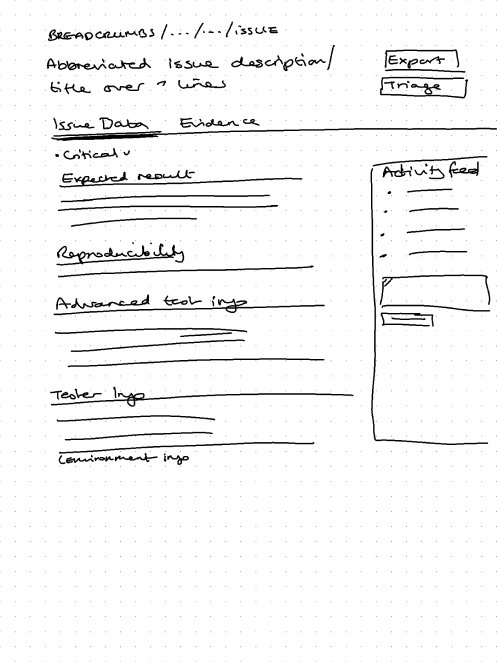 BREADCRUMBS/.../.../ISSUE
Abbreviated issue description/
title over 2 lines
Export
Triage
Issue Data Evidence
• Critical v
Expected result
Reproducibility
Advanced test info
Tester Info
(environment info
Activity feed